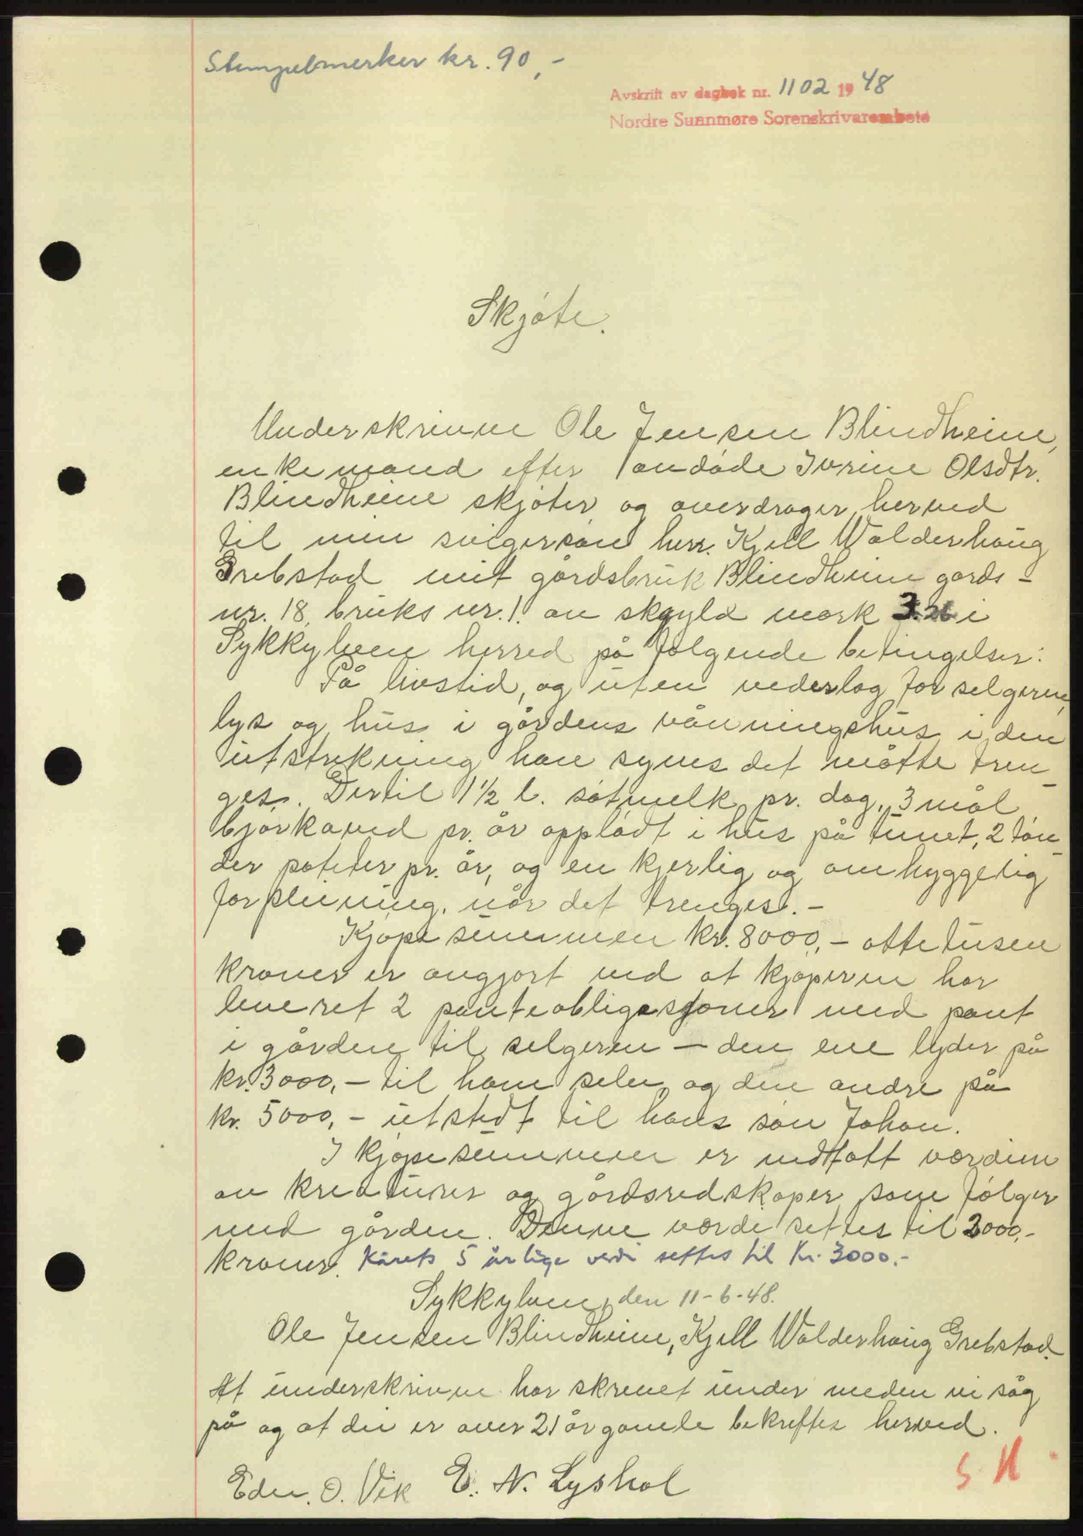 Stempelmerker kr. 90,-
Avskrift av dagbok nr. 1102 1948
Nordre Sunnmøre Sorenskrivarembete
Skjøte.
Underskrevne Ole Jensen Blindheim,
enkemand efter avdøde Ivrine Olsdtr.
Blindheim skjøter og overdrager herved
til min svigersøn herr Kjell Walderhaug
Grebstad mit gårdsbruk Blindheim gårds-
nr. 18, bruks nr. 1. av skyld mark 3.26 i
Sykkylven herred på følgende betingelser:
På livstid, og uten vederlag for selgeren,
lys og hus i gårdens våningshus i den
utstrekning han synes det måtte tren-
ges. Dertil 1½ l. søtmelk pr. dag, 3 mål
bjørkaved pr. år opplødt i hus på tunet, 2 tøn-
der poteter pr. år, og en kjerlig og omhyggelig
forpleining, når det trenges. -
Kjøpesummen kr. 8000,- ottetusen
kroner er avgjort ved at kjøperen har
leveret 2 panteobligasjoner med pant
i gården til selgeren - den ene lyder på
kr. 3000,- til ham selv, og den andre på
kr. 5000,- utstedt til hans søn Johan.
I kjøpesummen er indtatt værdien
av kreaturer og gårdsredskaper som følger
med gården. Denne værdi settes til 3000,-
kroner. Kårets 5 årlige verdi settes til Kr. 3000.-
Sykkylven, den 11-6-48.
Ole Jensen Blindheim, Kjell Walderhaug Grebstad.
At underskrivne har skrevet under meden vi såg
på og at dei er over 21 år gamle bekreftes herved.
Edv. O. Vik E. N. Lyshol
S H